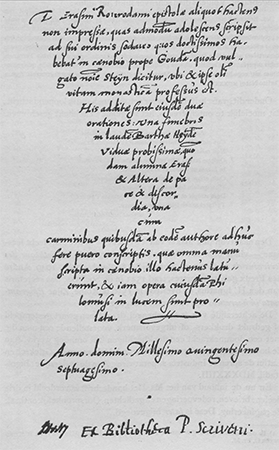 D. Erasmi Roterodami epistolæ aliquot hactenus
non impressæ, quas admodũ adolescens scripsit
ad sui ordinis sodales quos doctissimos ha-
bebat in cœnobio prope Goudã, quod vul-
gato noĩe Steÿn dicitur, ubi & ipse olĩ
vitam monasticã professus est.
His additæ sunt eiusdẽ duæ
orationes. Una funebris
in laudẽ Barthæ Heÿdẽ
Viduæ probissimæ, quo
dam alumnæ Eras.
& Altera de pa
ce & discor
dia, una
cum
carminibus quibusdã ab eodẽ authore adhuc
fere puero conscriptis, quæ omnia manu
scripta in cœnobio illo hactenus latu
erunt, & iam opera cuiusdã Phi
lomusi in lucem sunt pro
lata.
Anno. domini. Millesimo quingentesimo
septuagesimo.
Ex Bibliotheca P. Scriverii.